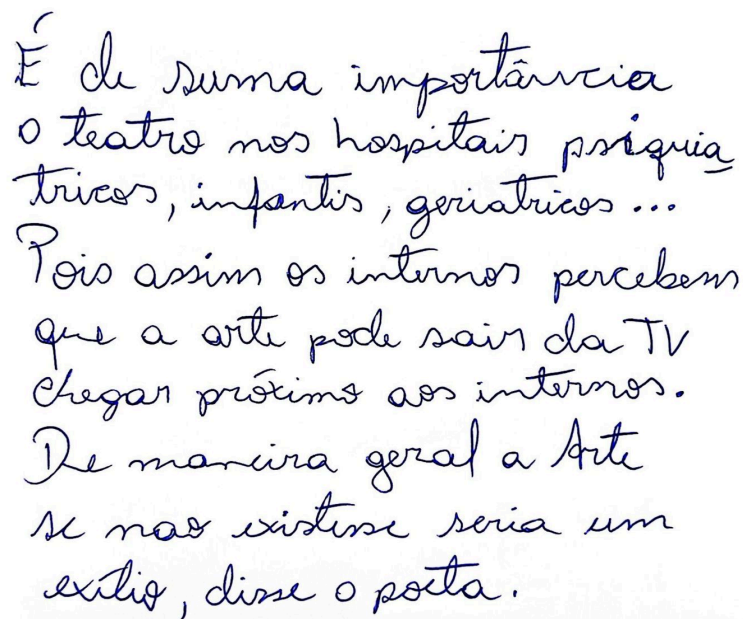 É de suma importância
o teatro nos hospitais psiquia
tricos, infantis, geriatricos...
Pois assim os internos percebem
que a arte pode sair da TV
chegar próximo aos internos.
De maneira geral a Arte
se nao existisse seria um
exílio, disse o poeta.